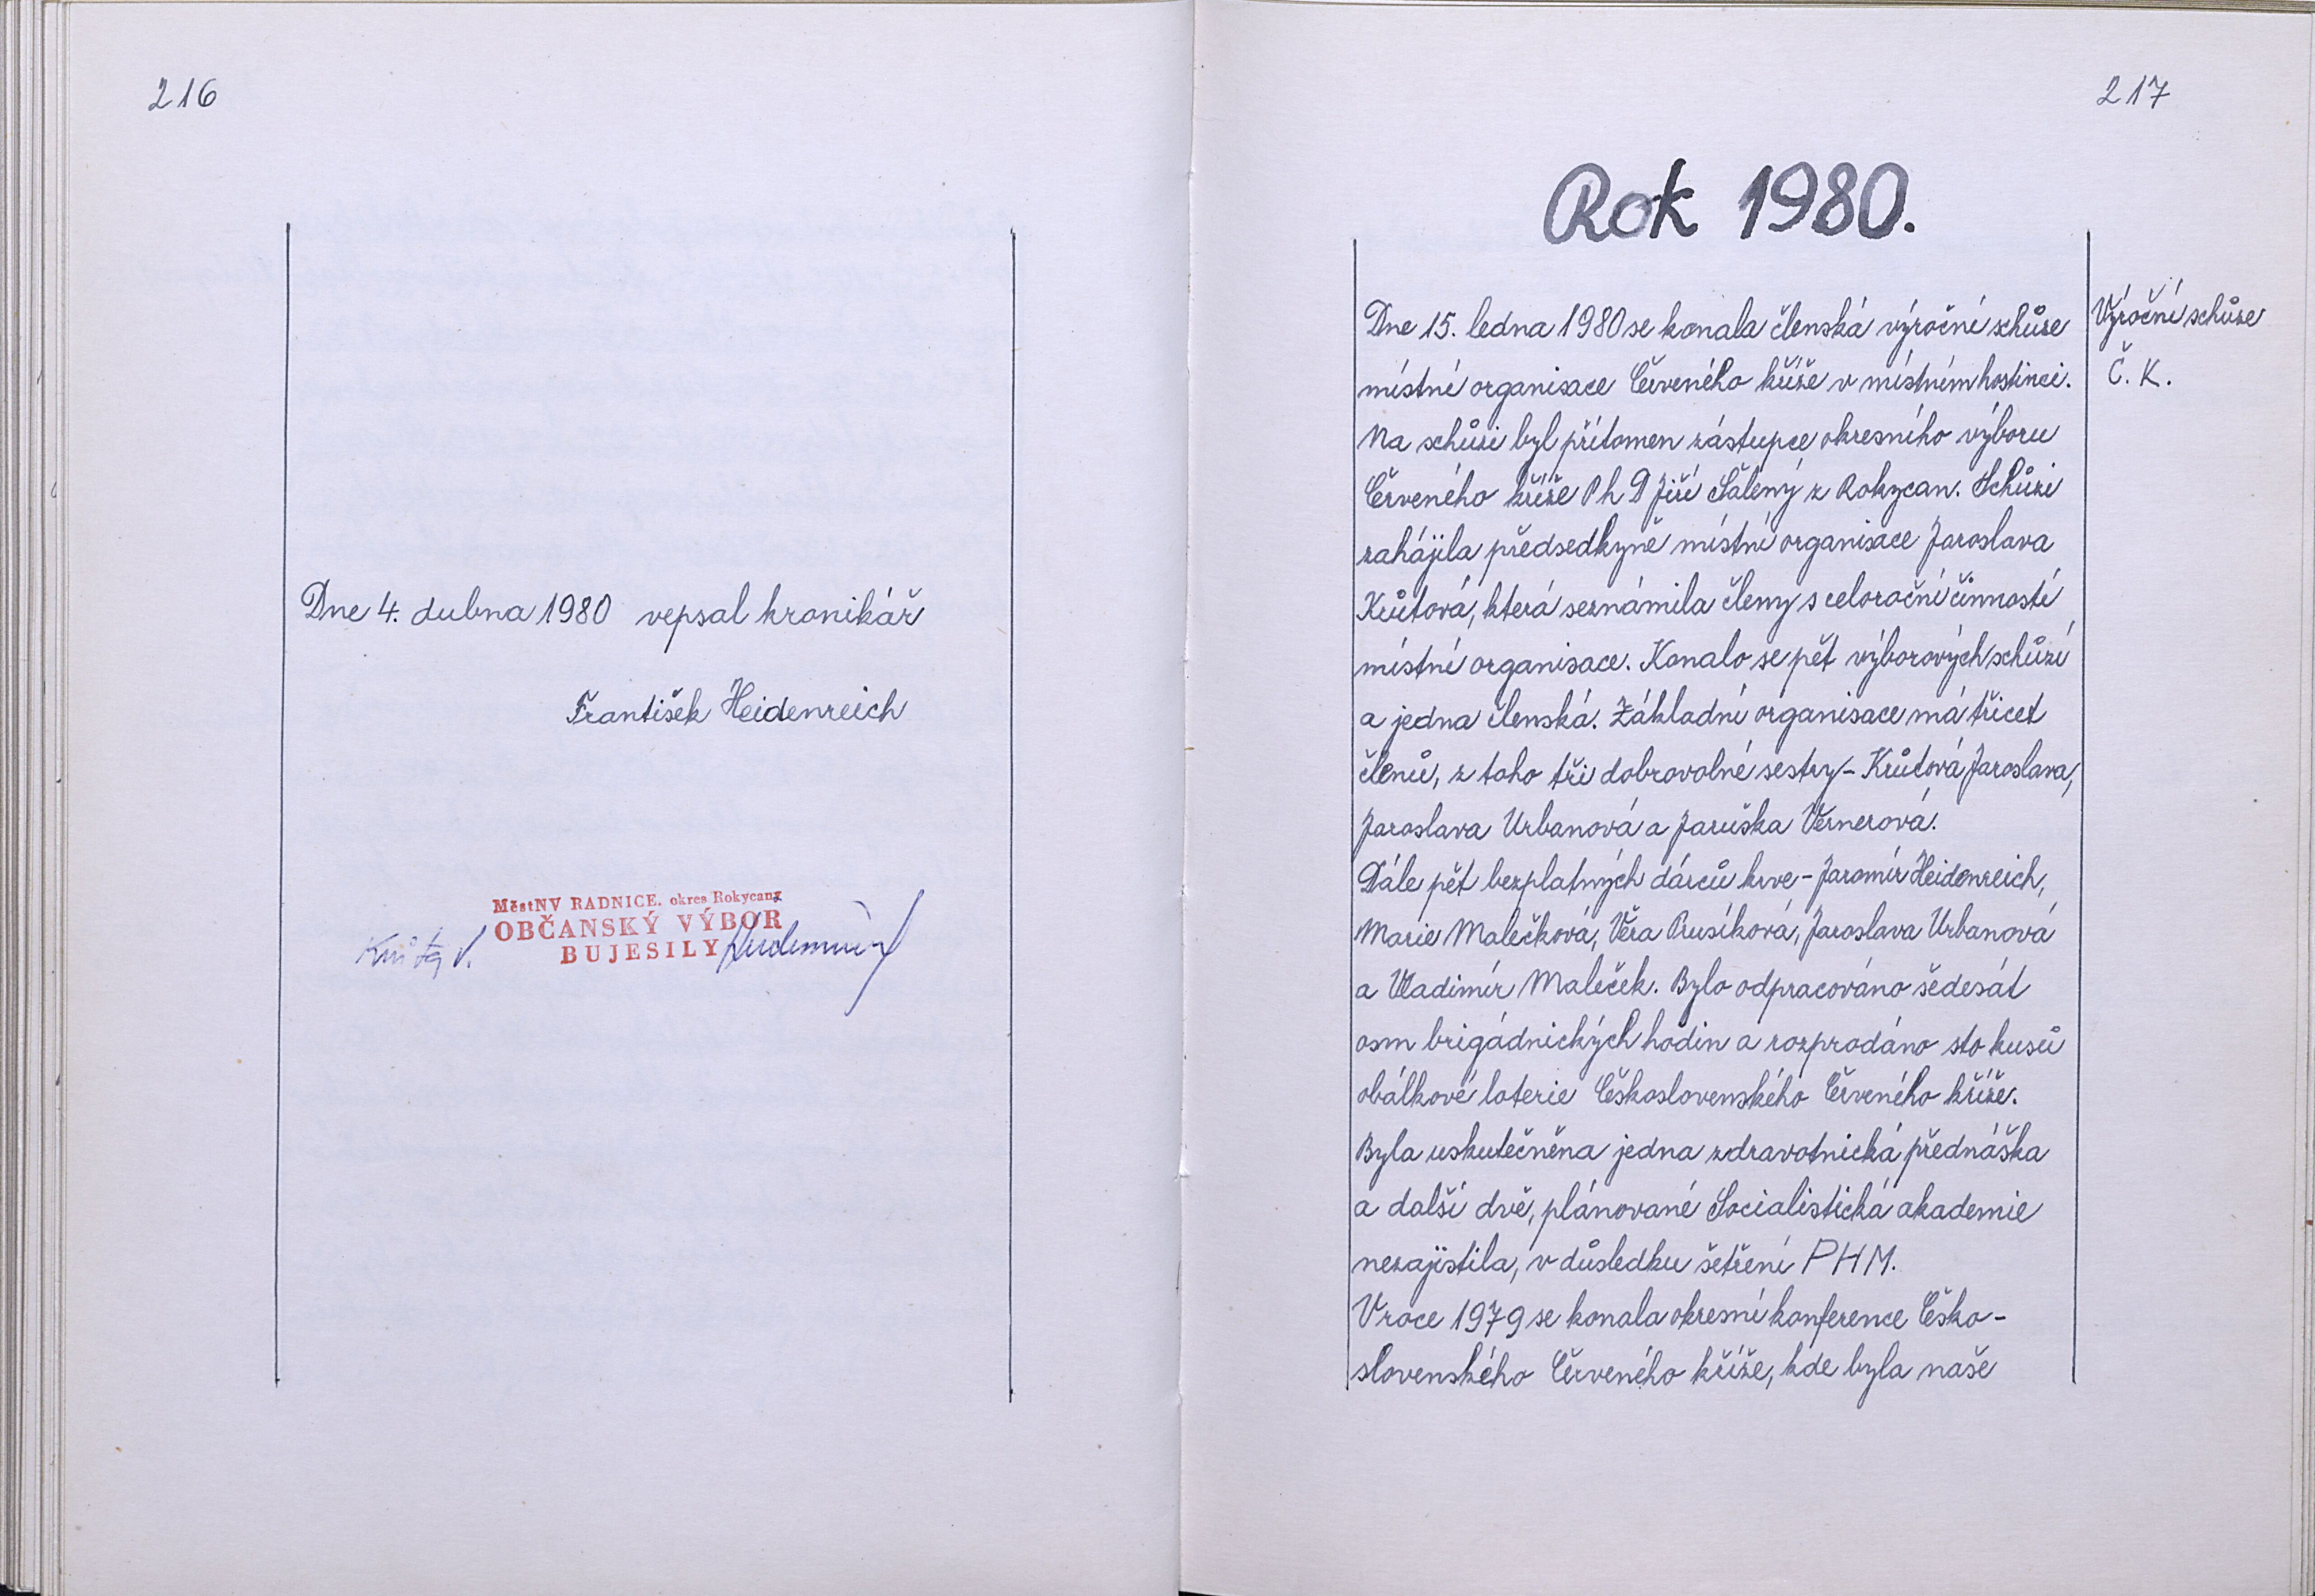 216
Dne 4. dubna 1980 vepsal kronikář
František Heidenreich
MěstNV RADNICE. okres Rokycany
OBČANSKÝ VÝBOR
BUJESILY
Krůta V.
217
Rok 1980.
Výroční schůze
Č. K.
Dne 15. ledna 1980 se konala členská výroční schůze
místní organisace Červeného kříže v místním hostinci.
Na schůzi byl přítomen zástupce okresního výboru
Červeného kříže Ph D Jiří Šálený z Rokycan. Schůzi
zahájila předsedkyně místní organisace Jaroslava
Krůtová, která seznámila členy s celoroční činností
místní organisace. Konalo se pět výborových schůzí
a jedna členská. Základní organisace má třicet
členů, z toho tři dobrovolné sestry - Krůtová Jaroslava,
Jaroslava Urbanová a Jaruška Vernerová.
Dále pět bezplatných dárců krve - Jaromír Heidenreich,
Marie Malečková, Věra Prusíková, Jaroslava Urbanová
a Vladimír Maleček. Bylo odpracováno šedesát
osm brigádnických hodin a rozprodáno sto kusů
obálkové loterie Československého Červeného kříže.
Byla uskutečněna jedna zdravotnická přednáška
a další dvě, plánované Socialistická akademie
nezajistila, v důsledku šetření PHM.
V roce 1979 se konala okresní konference Česko-
slovenského Červeného kříže, kde byla naše